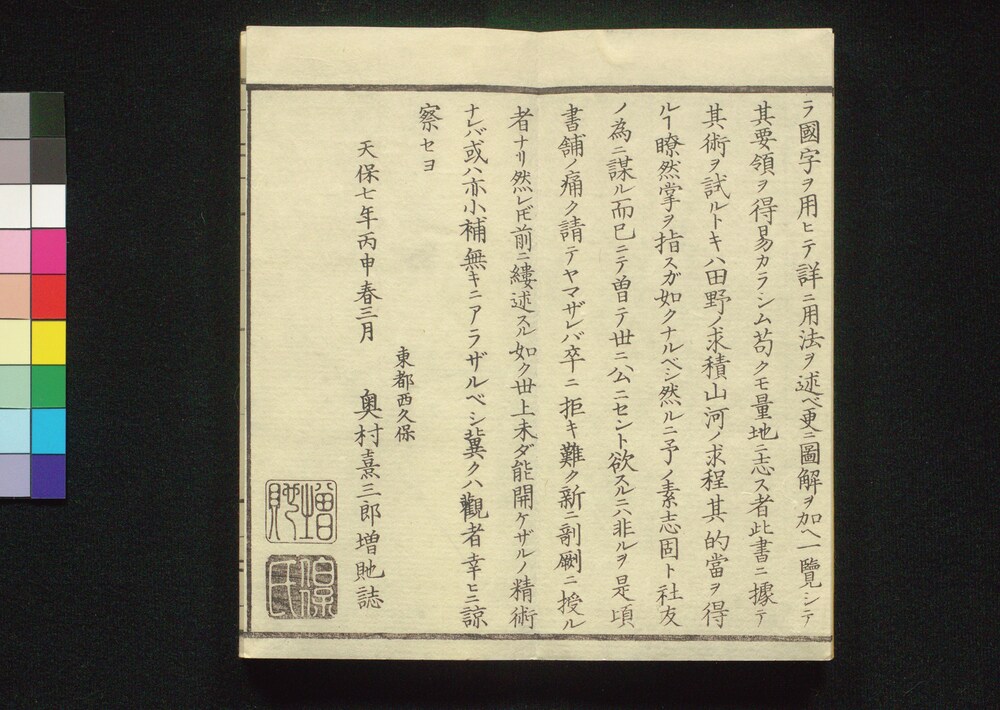 ラ國字ヲ用ヒテ詳ニ用法ヲ述ベ更ニ圖解ヲ加ヘ一覽シテ
其要領ヲ得易カラシム苟クモ量地ニ志ス者此書ニ據テ
其術ヲ試ルトキハ田野ノ求積山河ノ求程其的當ヲ得
ルヿ瞭然掌ヲ指スガ如クナルベシ然ルニ予ノ素志固ト社友
ノ為ニ謀ル而已ニテ曽テ世ニ公ニセント欲スルニハ非ルヲ是頃
書舗ノ痛ク請テヤマザレバ卒ニ拒キ難ク新ニ剞劂ニ授ル
者ナリ然レ𪜈前ニ縷述スル如ク世上未ダ能開ケザルノ精術
ナレバ或ハ亦小補無キニアラザルベシ冀クハ觀者幸ヒニ諒
察セヨ
天保七年丙申春三月
東都西久保
奥村喜三郎増𧵊誌
増𧵊
保氏